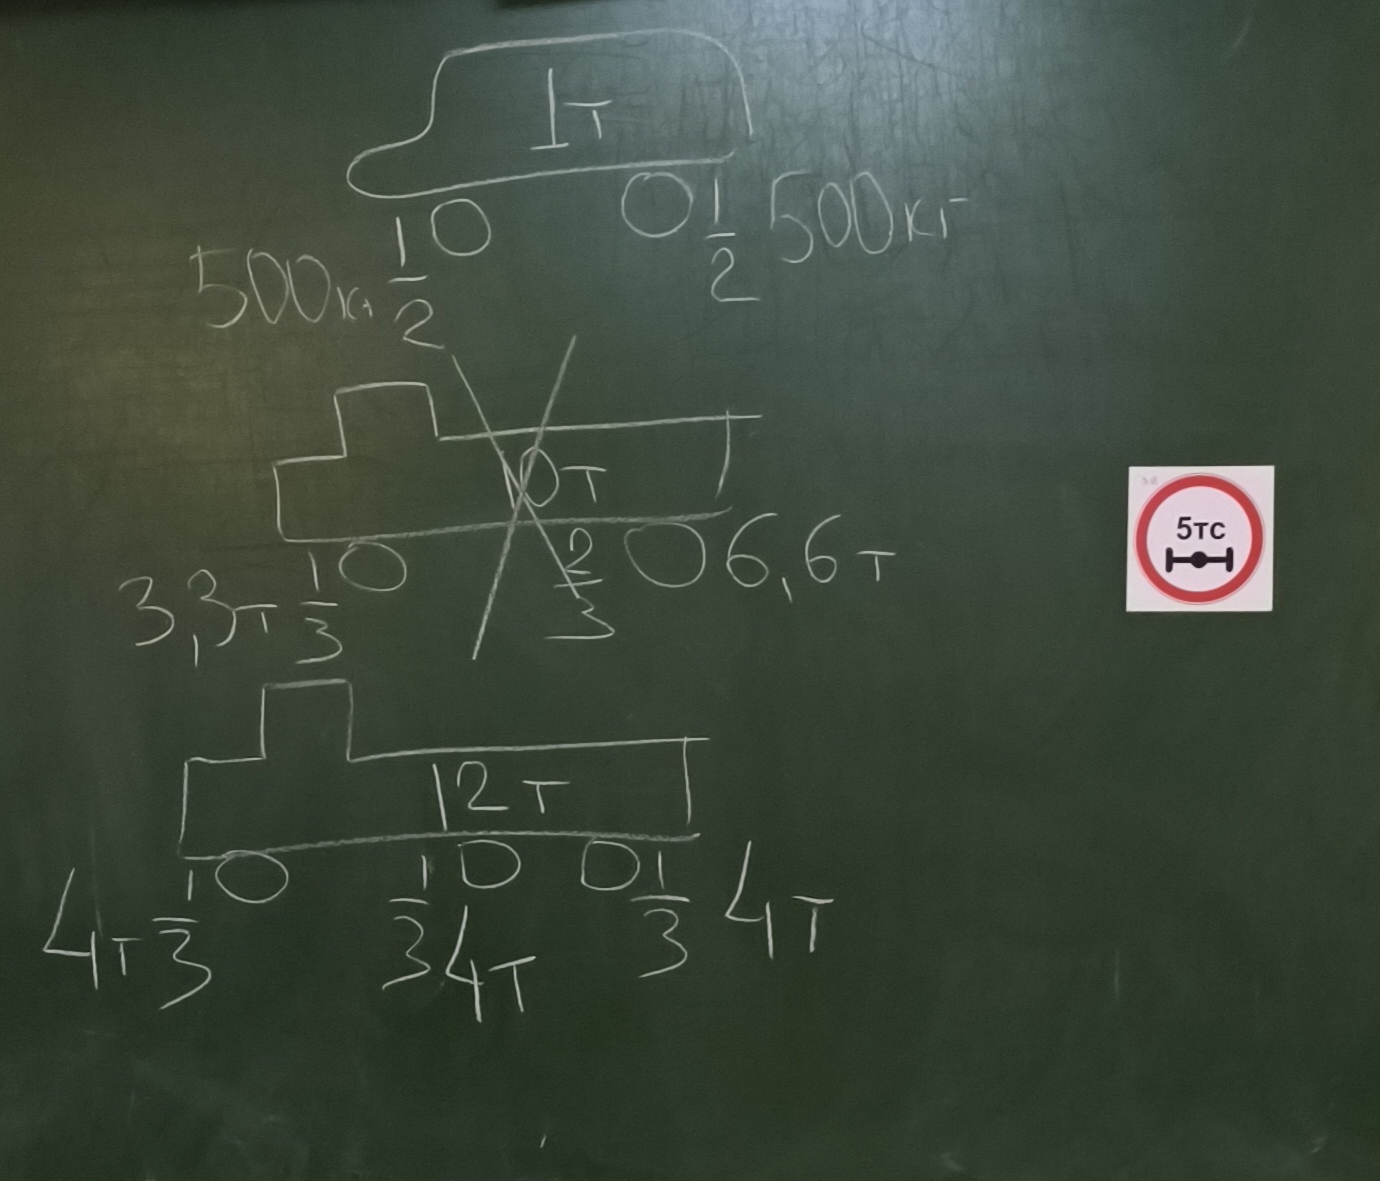 1т
500кг 1/2
1/2 500кг
10т
3,3т 1/3
2/3 6,6т
12т
4т 1/3
1/3 4т
1/3 4т
5тс